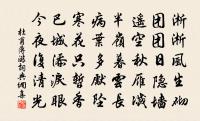 淅淅風生砌
團團日隱墻
遙空秋雁滅
半嶺暮雲長
病葉多先墜
寒花只暫香
巴城添淚眼
今夜復清光
杜甫薄游詞典網書